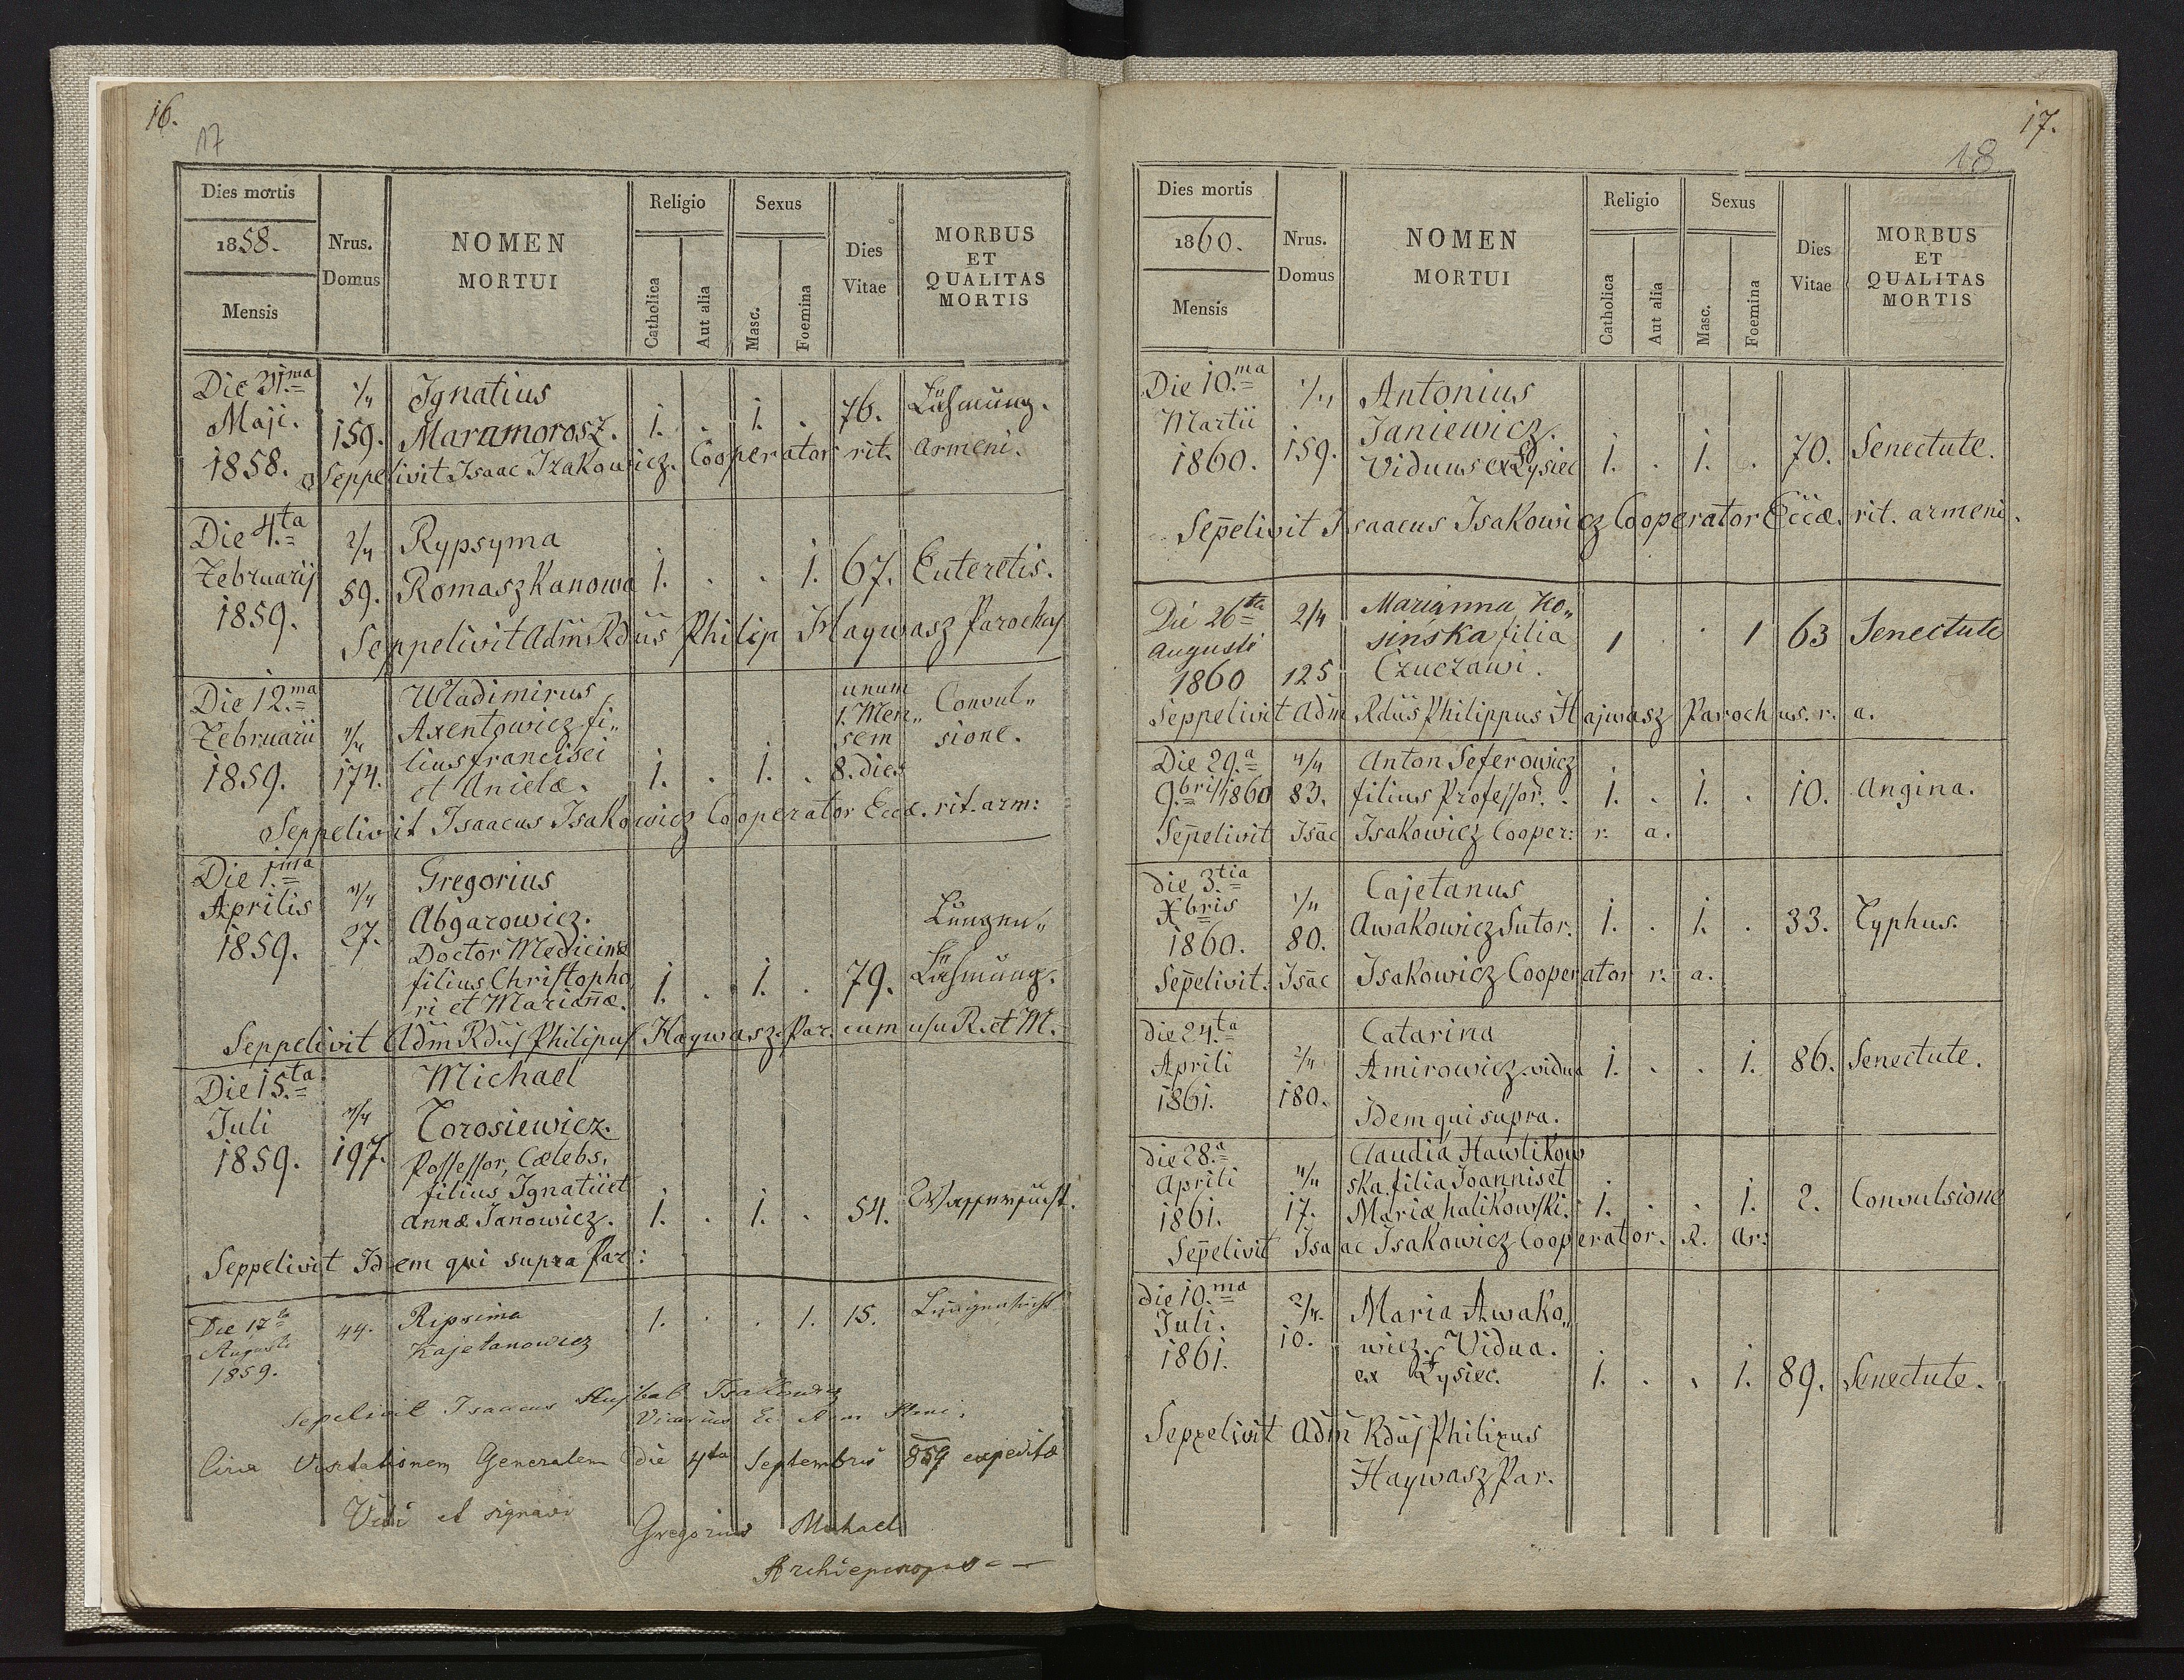 16.
17
Dies mortis
1858.
Mensis
Nrus.
Domus
NOMEN
MORTUI
Religio
Catholica
Aut alia
Sexus
Masc.
Foemina
Dies
Vitae
MORBUS
ET
QUALITAS
MORTIS
Die 31.ma
Maji.
1858.
159.
Ignatius
Maramorosz.
1. . 1. . 76. Lähmung.
Seppelivit Isaac Izakowicz. Cooperator rit. Armeni.
Die 4.ta
Februarij
1859.
2/4
59.
Rypsyma
Romaszkanowa
1. . . 1. 67. Enteretis.
Seppelivit Adm Rdus Philip Haywasz Parochus
Die 12.ma
Februarii
1859.
174.
Wladimirus
Axentowicz fi„
lius francisci
et Anielæ.
1. . 1. .
unum
1. Men„
sem
8. dies
Convul„
sione.
Seppelivit Isaacus Isakowicz Cooperator Eccæ. rit. arm:
Die 1.ma
Aprilis
1859.
27.
Gregorius
Abgarowicz.
Doctor Medicinæ
filius Christopho
ri et Mariañæ.
1. . 1. . 79.
Lungen„
Lähmung.
Seppelivit Adm Rdus Philipus Haywasz Par. cum usu R. et M.
Die 15.ta
Juli
1859.
197.
Michael
Torosiewicz.
Possessor, Cælebs,
filius Ignatii et
annæ Janowicz.
1. . 1. . 54. Wassersucht.
Seppelivit Idem qui supra Par:
Die 17
Augusti
1859.
44.
Ripsima
Kajetanowicz
1. . . 1. 15. Lungensucht
Sepelivit Isaacus Isakowicz
Vicarius
Circa Visitationem Generalem die 4ta Septembris 859 expeditæ
Vidi et signavi
Gregorius Michael
Archiepiscopus
17.
18
Dies mortis
1860.
Mensis
Nrus.
Domus
NOMEN
MORTUI
Religio
Catholica
Aut alia
Sexus
Masc.
Foemina
Dies
Vitae
MORBUS
ET
QUALITAS
MORTIS
Die 10.ma
Martii
1860.
159.
Antonius
Janiewicz.
Viduus ex Łysiec
1. . 1. . 70. Senectute.
Sepelivit Isaacus Isakowicz Cooperator Eccæ. rit. armeni.
Die 26ta
Augusti
1860
2/4
125
Marianna Ko„
sinska filia
Czuczawi.
1 . . 1 63 Senectute
Seppelivit Adm Rdus Philippus Hajwasz Parochus. r. a.
Die 29.a
9.bris 1860
4/4
83.
Anton Seferowicz
filius Professor.
1. . 1. . 10. Angina.
Sepelivit Isaac Isakowicz Cooper: r. a.
die 3.tia
Xbris
1860.
80.
Cajetanus
Awakowicz Sutor.
1. . 1. . 33. Typhus.
Sepelivit. Isaac Isakowicz Cooperator r. a.
die 24.ta
Aprili
1861.
2/4
180.
Catarina
Amirowicz. vidua
1. . . 1. 86. Senectute.
Idem qui supra.
die 28.a
Aprili
1861.
17.
Claudia Hawlikow
ska. filia Joannis et
Mariæ halikowski.
1. . . 1. 2. Convulsione
Sepelivit Isaac Isakowicz Cooperator. R. Ar:
die 10.ma
Juli.
1861.
2/4.
10.
Maria Awako„
wicz. Vidua.
ex Łysiec.
1. . . 1. 89. Senectute.
Seppelivit Adm Rdus Philipus
Haywasz Par.